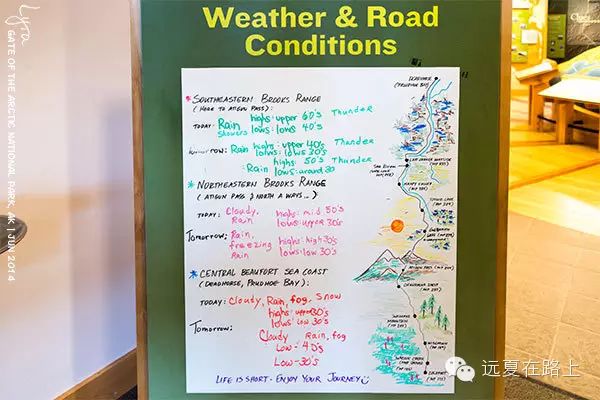 Lyra
GATE OF THE ARCTIC NATIONAL PARK, AK | JUN 2014
Weather & Road
Conditions
* SOUTHEASTERN BROOKS RANGE
(HERE TO ATIGUN PASS):
TODAY: Rain highs: upper 60's Thunder
Showers lows: low 40's
Tomorrow: Rain highs: upper 40's Thunder
lows: low 30's
Rain highs: 50's Thunder
lows: around 30
* NORTHEASTERN BROOKS RANGE
(ATIGUN PASS & NORTH A WAYS...)
TODAY: Cloudy, highs: mid 50's
Rain lows: upper 30's
Tomorrow: Rain, highs: high 30's
freezing lows: low 30's
Rain
* CENTRAL BEAUFORT SEA COAST
(DEADHORSE, PRUDHOE BAY):
TODAY: Cloudy, Rain, fog, Snow
highs: upper 30's
lows: low 30's
Tomorrow:
Cloudy Rain, fog
Low - 40's
Low - 30's
LIFE IS SHORT - ENJOY YOUR JOURNEY
DEADHORSE
(PRUDHOE BAY)
HAPPY VALLEY
ATIGUN PASS
SUKAKPAK
MOUNTAIN
WISEMAN
COLDFOOT
远夏在路上